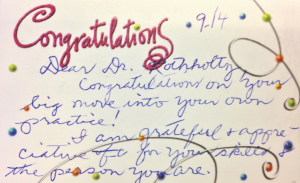 Congratulations
9/4
Dear Dr. Rothholtz,
Congratulations on your
big move into your own
practice!
I am grateful & appre-
ciative for your skills &
the person you are.